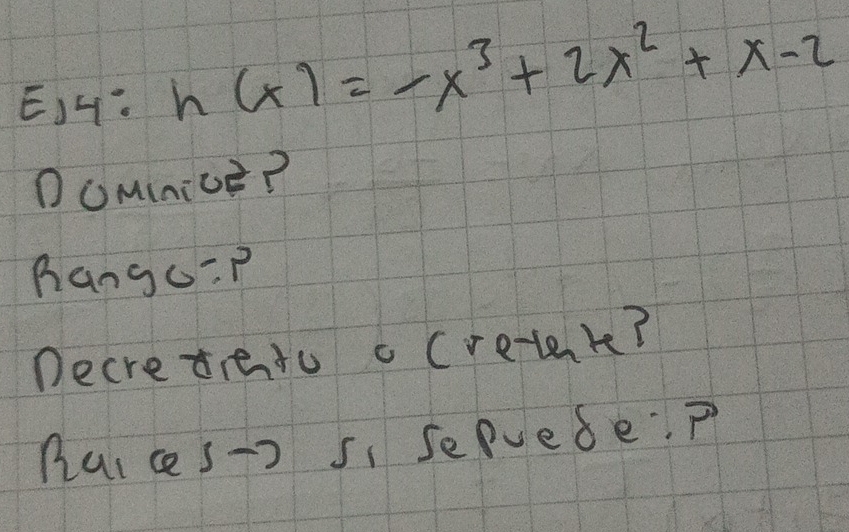 EJ4: h(x) = -x³ + 2x² + x - 2
Dominio=?
Rango=?
Decreciento o Creciente?
Raices → si se puede:?